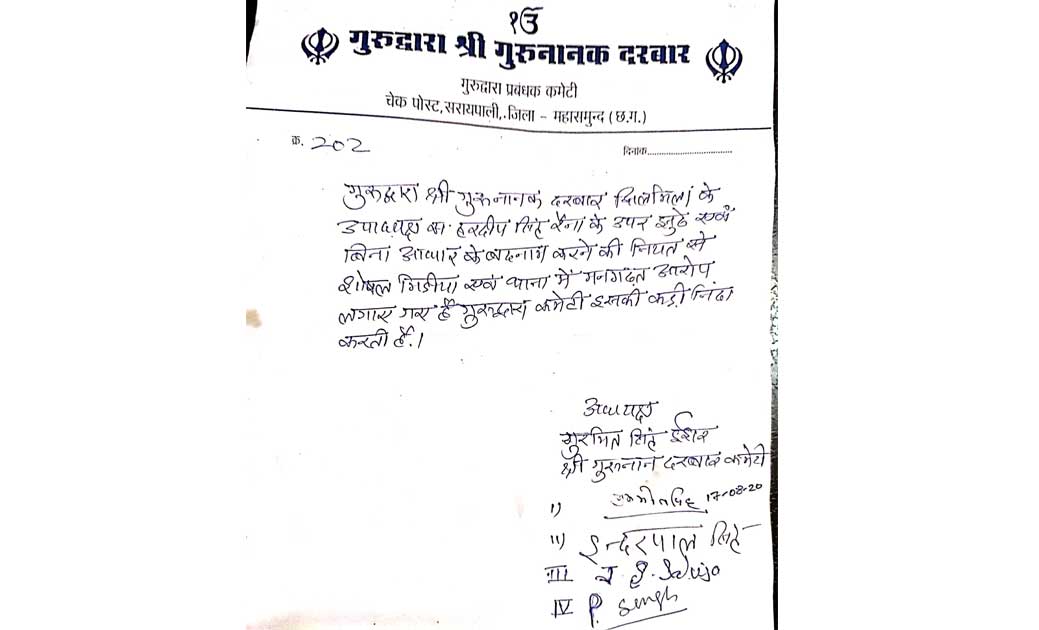 ੴ
गुरुद्वारा श्री गुरुनानक दरबार
गुरुद्वारा प्रबंधक कमेटी
चेक पोस्ट,सरायपाली,.जिला - महासमुन्द (छ.ग.)
क्र. 202
दिनाक..............................
गुरुद्वारा श्री गुरुनानक दरबार झिलमिला के
उपाध्यक्ष स. हरदीप सिंह रैना के उपर झुठे एवं
बिना आधार के बदनाम करने की नियत से
शोसल मिडीया एवं थाना में मनगढ़त आरोप
लगाए गए है गुरुद्वारा कमेटी इसकी कड़ी निंदा
करती है.।
अध्यक्ष
गुरमित सिंह
श्री गुरुनान दरबार कमेटी
I) 17-08-20
II) इन्दरपाल सिंह
III
IV P. Singh